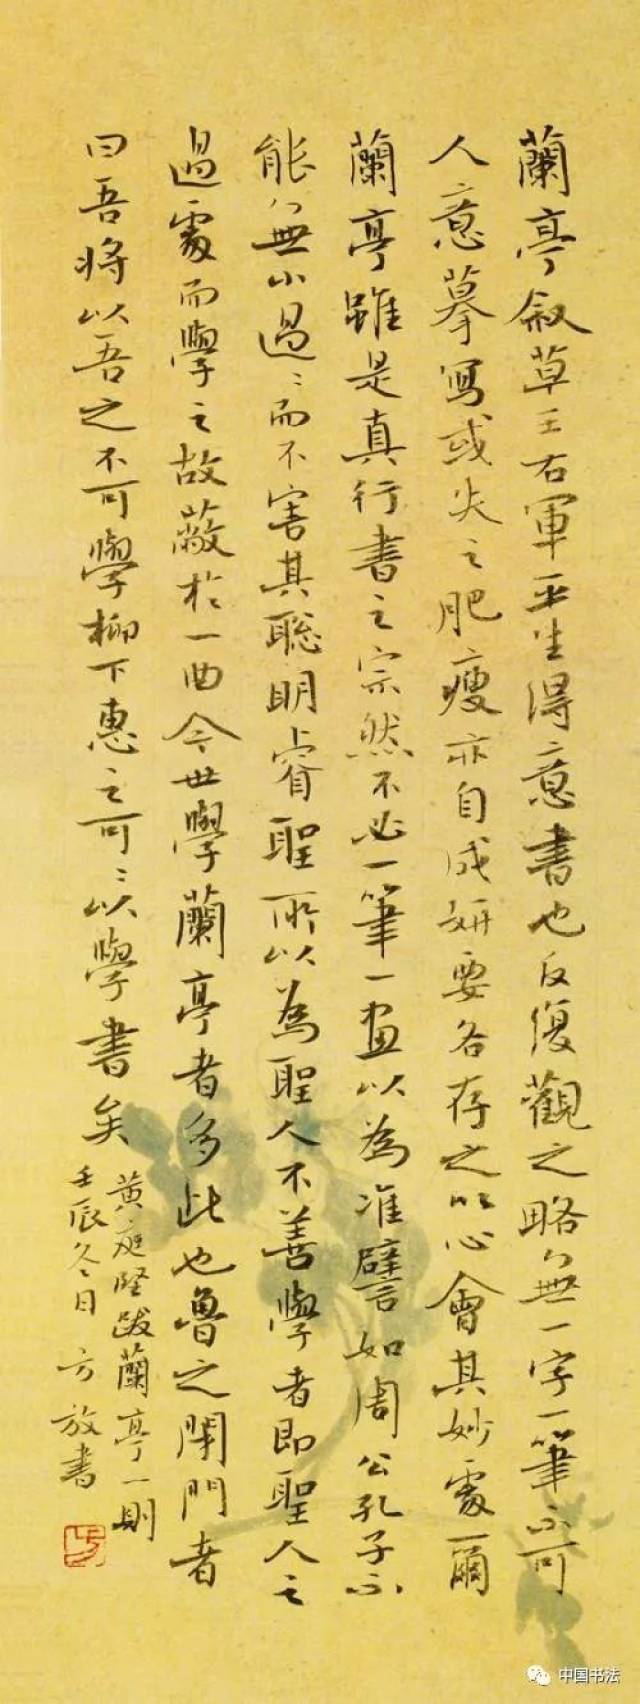 蘭亭敘草王右軍平生得意書也反復觀之略無一字一筆不可
人意摹寫或失之肥瘦亦自成妍要各存之以心會其妙處爾
蘭亭雖是真行書之宗然不必一筆一畫以為准譬如周公孔子不
能無小過〻而不害其聰明睿聖所以為聖人不善學者即聖人之
過處而學之故蔽於一曲今世學蘭亭者多此也魯之閉門者
曰吾將以吾之不可學柳下惠之可〻以學書矣
黃庭堅跋蘭亭一則
壬辰冬日 方放書
中国书法